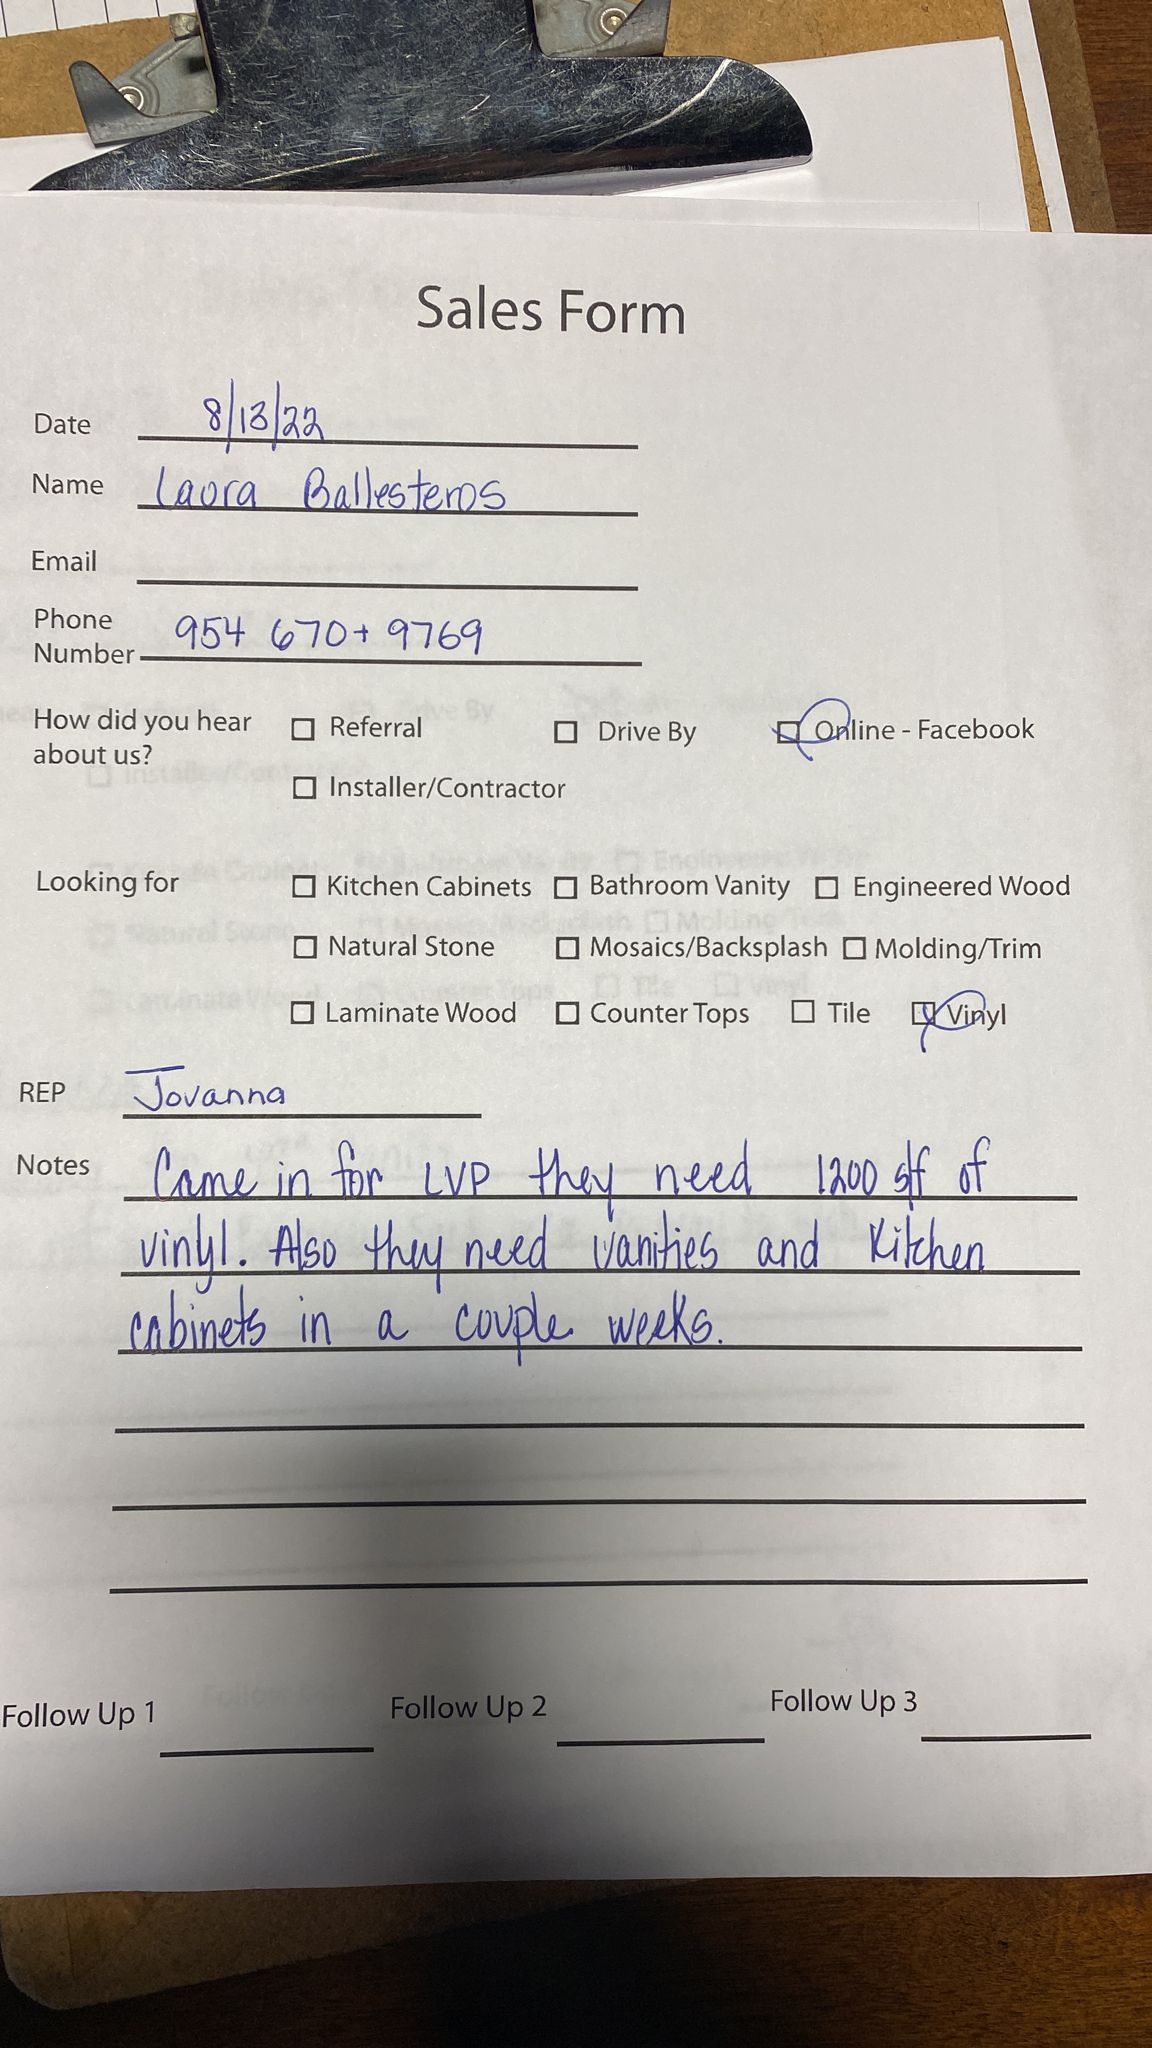 Sales Form
Date 8/13/22
Name Laura Ballesteros
Email
Phone
Number 954 670+ 9769
How did you hear about us?
☐ Referral ☐ Drive By ☑ Online - Facebook
☐ Installer/Contractor
Looking for ☐ Kitchen Cabinets ☐ Bathroom Vanity ☐ Engineered Wood
☐ Natural Stone ☐ Mosaics/Backsplash ☐ Molding/Trim
☐ Laminate Wood ☐ Counter Tops ☐ Tile ☑ Vinyl
REP Jovanna
Notes Came in for LVP they need 1200 s/f of
vinyl. Also they need vanities and Kitchen
cabinets in a couple weeks.
Follow Up 1 Follow Up 2 Follow Up 3